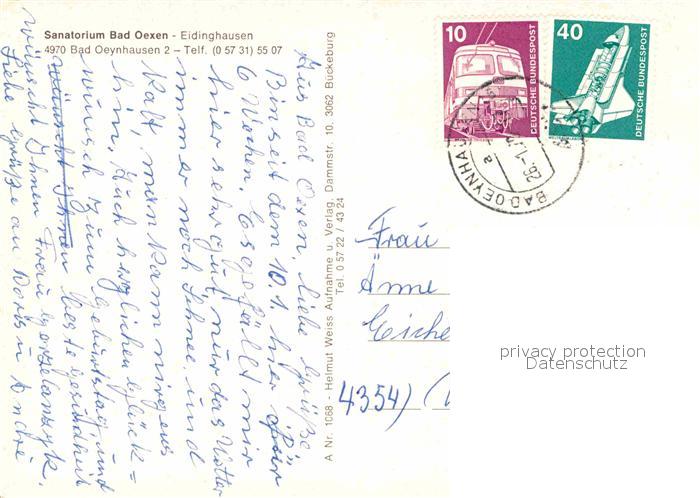 Sanatorium Bad Oexen - Eidinghausen
4970 Bad Oeynhausen 2 – Telf. (0 57 31) 55 07
Aus Bad Oexen, liebe Grüße
Bin seit dem 10.1. hier für
6 Wochen. Es gefällt mir
hier sehr gut, nur das Wetter
immer noch Schnee und
kalt, man kann nirgens
hin. Auch herzlichen Glück=
wunsch zum Geburtstag, und
beste Gesundheit
wünscht Ihnen Frau
Liebe Grüße an Doris u André
A Nr. 1068 - Helmut Weiss Aufnahme u. Verlag, Dammstr. 10, 3062 Bückeburg
Tel. 0 57 22 / 43 24
10
DEUTSCHE BUNDESPOST
40
DEUTSCHE BUNDESPOST
BAD OEYNHAUSEN
a
Frau
Änne
Eiche
4354)
privacy protection
Datenschutz